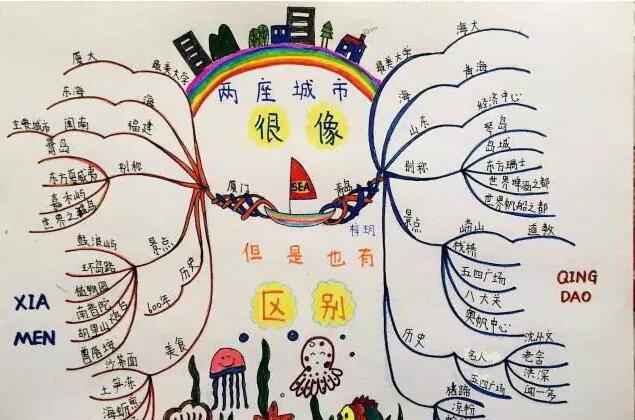 两座城市
很像
SEA
厦门
青岛
梓玥
但是也有
区别
XIA
MEN
QING
DAO
最美大学
厦大
海
东海
福建
闽南
主要城市
别称
鹭岛
东方夏威夷
嘉禾屿
景点
鼓浪屿
环岛路
植物园
南普陀
胡里山炮台
曾厝垵
历史
600年
美食
沙茶面
土笋冻
海蛎煎
最美大学
海大
海
黄海
山东
经济中心
别称
琴岛
岛城
东方瑞士
世界啤酒之都
世界帆船之都
景点
崂山
道教
栈桥
五四广场
八大关
奥帆中心
历史
名人
沈从文
老舍
洪深
闻一多
五四广场
猪蹄
凉粉